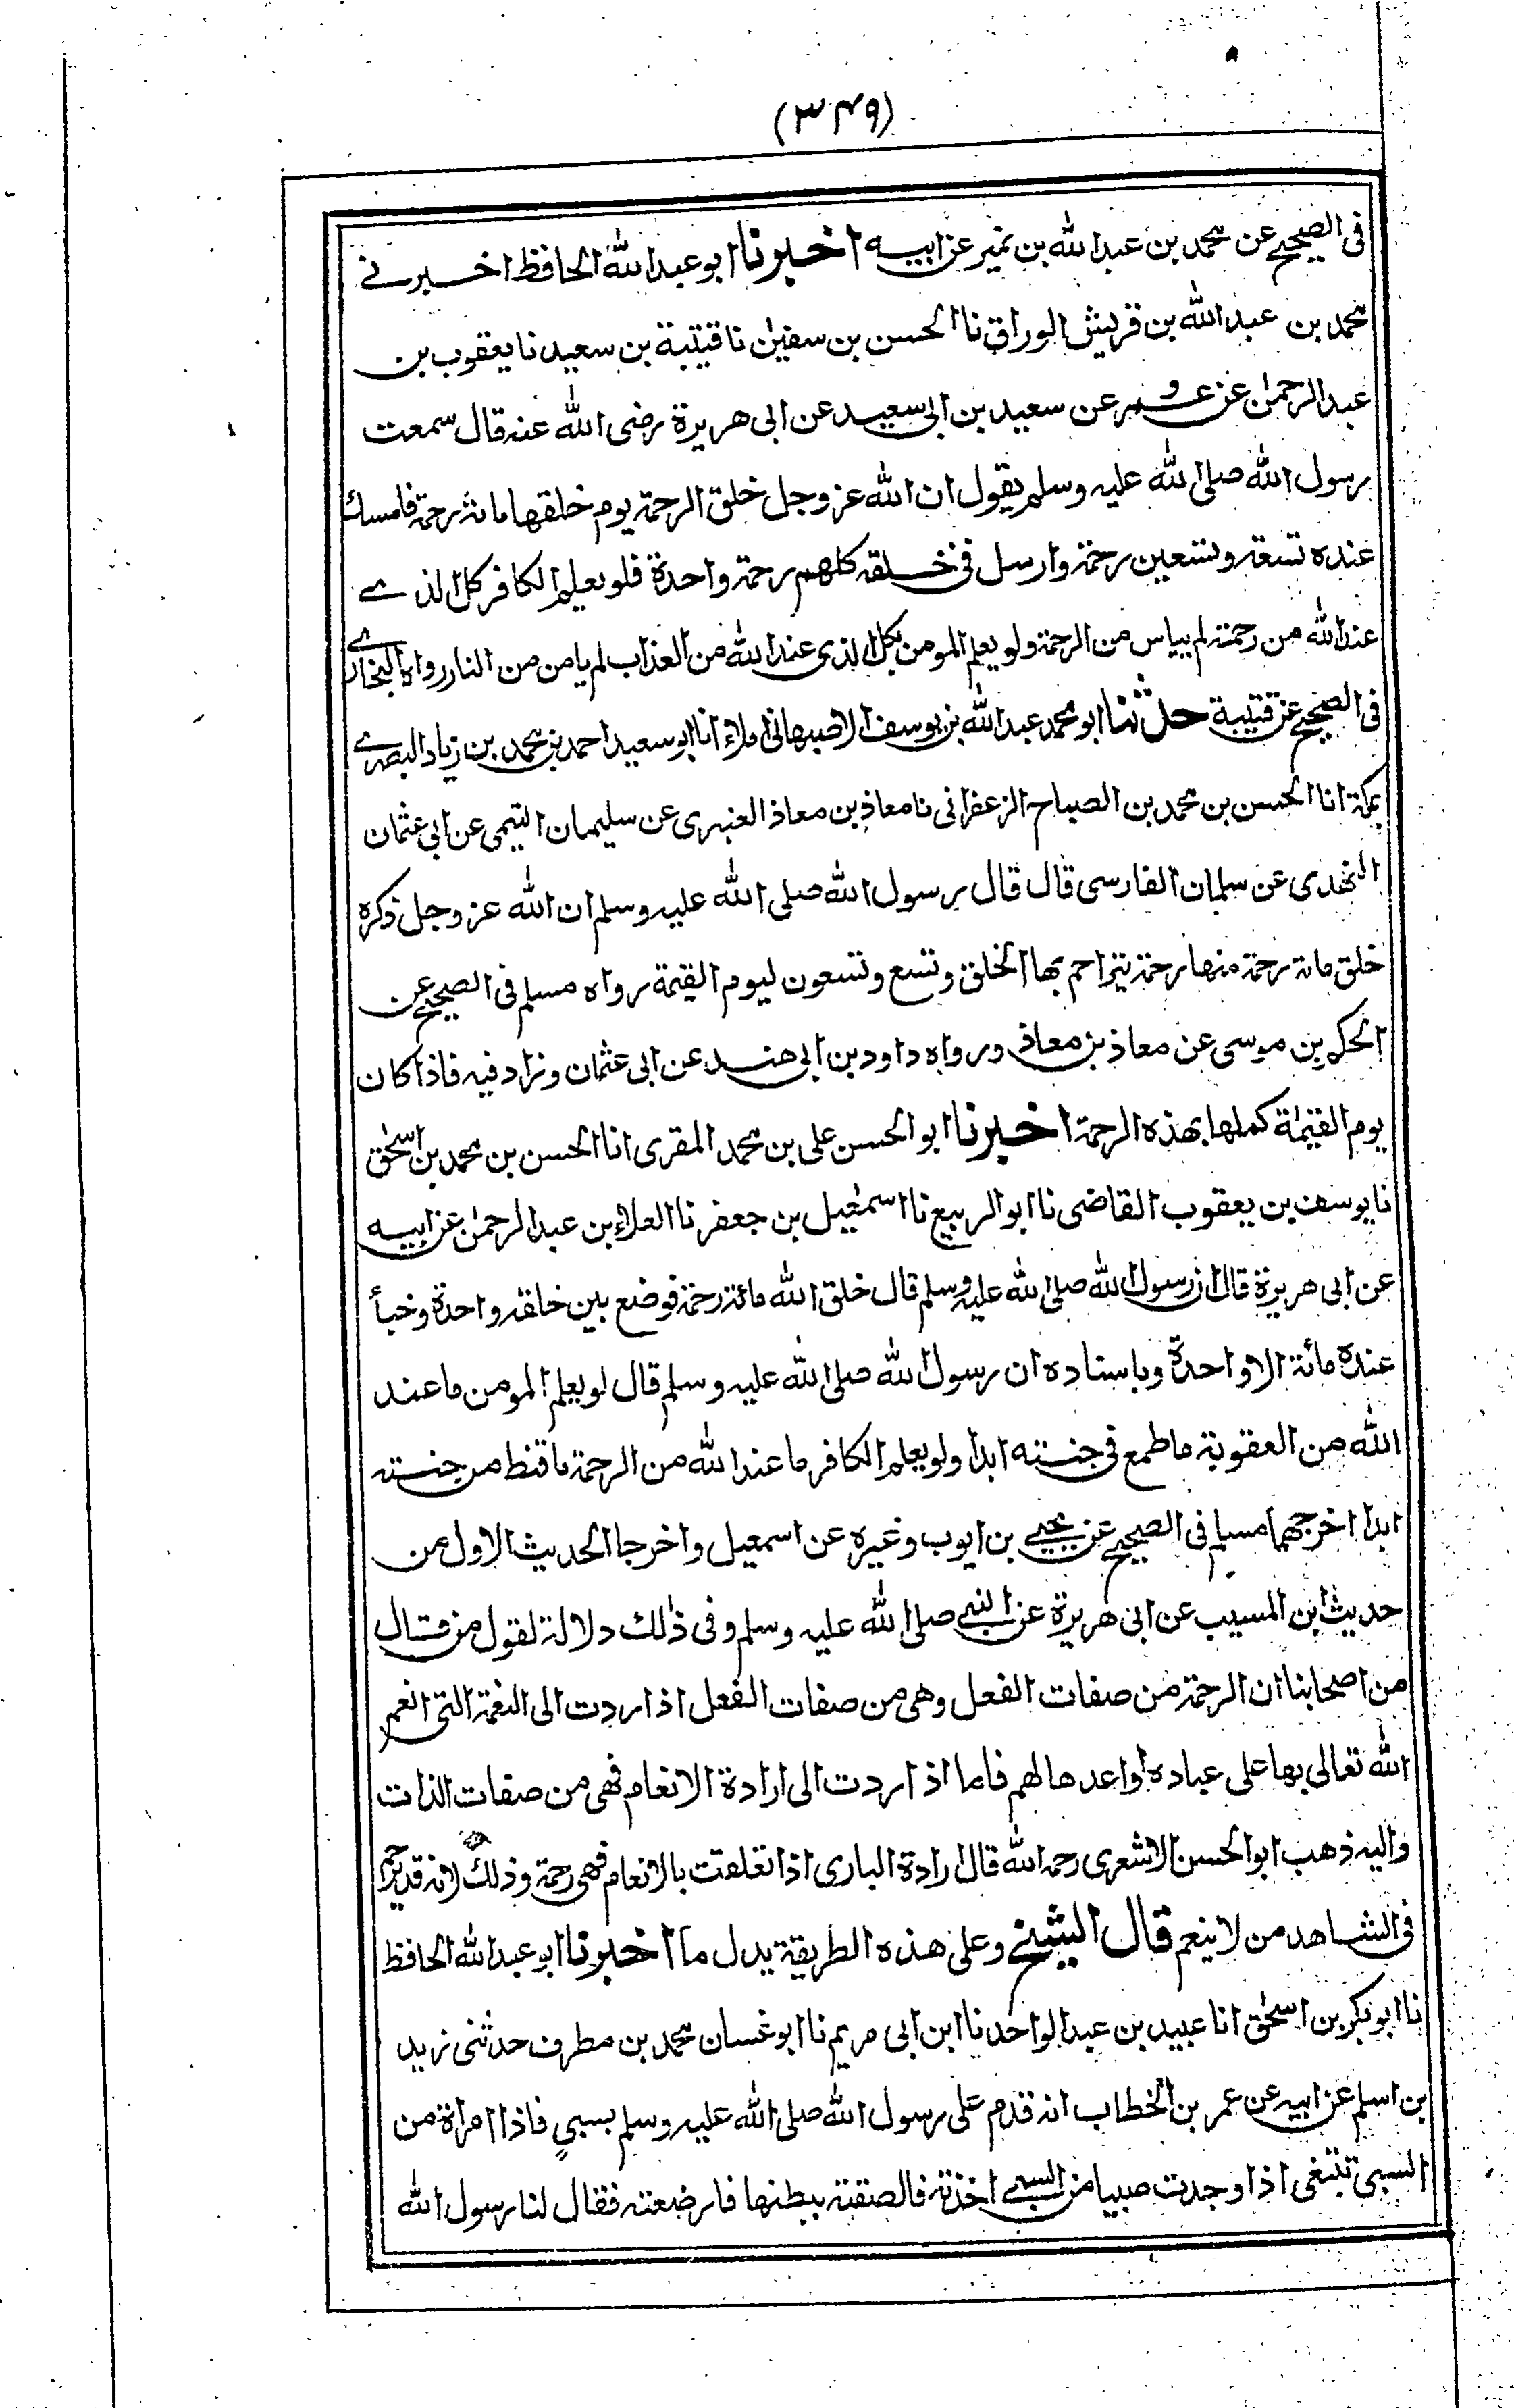 (۳۴۹)
فى الصحيح عن محمد بن عبد الله بن نمير عن ابيه اخبرنا ابو عبد الله الحافظ اخبرنے
محمد بن عبد الله بن قريش الوراق نا الحسن بن سفيٰن نا قتيبة بن سعيد نا يعقوب بن
عبد الرحمٰن عن عمرو عن سعيد بن ابى سعيد عن ابى هريرة رضى الله عنه قال سمعت
رسول الله صلى الله عليه وسلم يقول ان الله عز وجل خلق الرحمة يوم خلقها مائة رحمة فامسك
عنده تسعة وتسعين رحمة وارسل فى خلقه كلهم رحمة واحدة فلو يعلم الكافر كل الذے
عند الله من رحمته لم ييأس من الرحمة ولو يعلم المومن بكل الذى عند الله من العذاب لم يامن من النار رواه البخارے
فى الصحيح عن قتيبة حدثنا ابو محمد عبد الله بن يوسف الاصبهانى املاء انا ابو سعيد احمد بن محمد بن زياد البصرے
بمكة انا الحسن بن محمد بن الصباح الزعفرانى نا معاذ بن معاذ العنبرى عن سليمان التيمى عن ابى عثمان
النهدى عن سلمان الفارسى قال قال رسول الله صلى الله عليه وسلم ان الله عز وجل ذكره
خلق مائة رحمة منها رحمة يتراحم بها الخلق وتسع وتسعون ليوم القيٰمة رواه مسلم فى الصحيح عن
الحكم بن موسى عن معاذ بن معاذ ورواه داود بن ابى هند عن ابى عثمان وزاد فيه فاذا كان
يوم القيٰمة كملها بهذه الرحمة اخبرنا ابو الحسن على بن محمد المقرى انا الحسن بن محمد بن اسحٰق
نا يوسف بن يعقوب القاضى نا ابو الربيع نا اسمٰعيل بن جعفر نا العلاء بن عبد الرحمٰن عن ابيه
عن ابى هريرة قال ان رسول الله صلى الله عليه وسلم قال خلق الله مائة رحمة فوضع بين خلقه واحدة وخبأ
عنده مائة الا واحدة وباسناده ان رسول الله صلى الله عليه وسلم قال لو يعلم المومن ما عند
الله من العقوبة ما طمع فى جنته ابدا ولو يعلم الكافر ما عند الله من الرحمة ما قنط من جنته
ابدا اخرجهما مسلم فى الصحيح عن يحيے بن ايوب وغيره عن اسمعيل واخرجا الحديث الاول من
حديث ابن المسيب عن ابى هريرة عن النبے صلى الله عليه وسلم وفى ذٰلك دلالة لقول من قال
من اصحابنا ان الرحمة من صفات الفعل وهى من صفات الفعل اذا ردت الى النعمة التى انعم
الله تعالى بها على عباده او اعدها لهم فاما اذا ردت الى ارادة الانعام فهى من صفات الذات
واليه ذهب ابو الحسن الاشعرى رحمه الله قال ارادة البارى اذا تعلقت بالانعام فهى رحمة وذلك لانه قد يرحم
فى الشاهد من لا ينعم قال الشيخ وعلى هذه الطريقة يدل ما اخبرنا ابو عبد الله الحافظ
نا ابو بكر بن اسحٰق انا عبيد بن عبد الواحد نا ابن ابى مريم نا ابو غسان محمد بن مطرف حدثنى زيد
بن اسلم عن ابيه عن عمر بن الخطاب انه قدم على رسول الله صلى الله عليه وسلم بسبىٍ فاذا امراة من
السبى تبتغى اذا وجدت صبيا من السبے اخذته فالصقته ببطنها فارضعته فقال لنا رسول الله